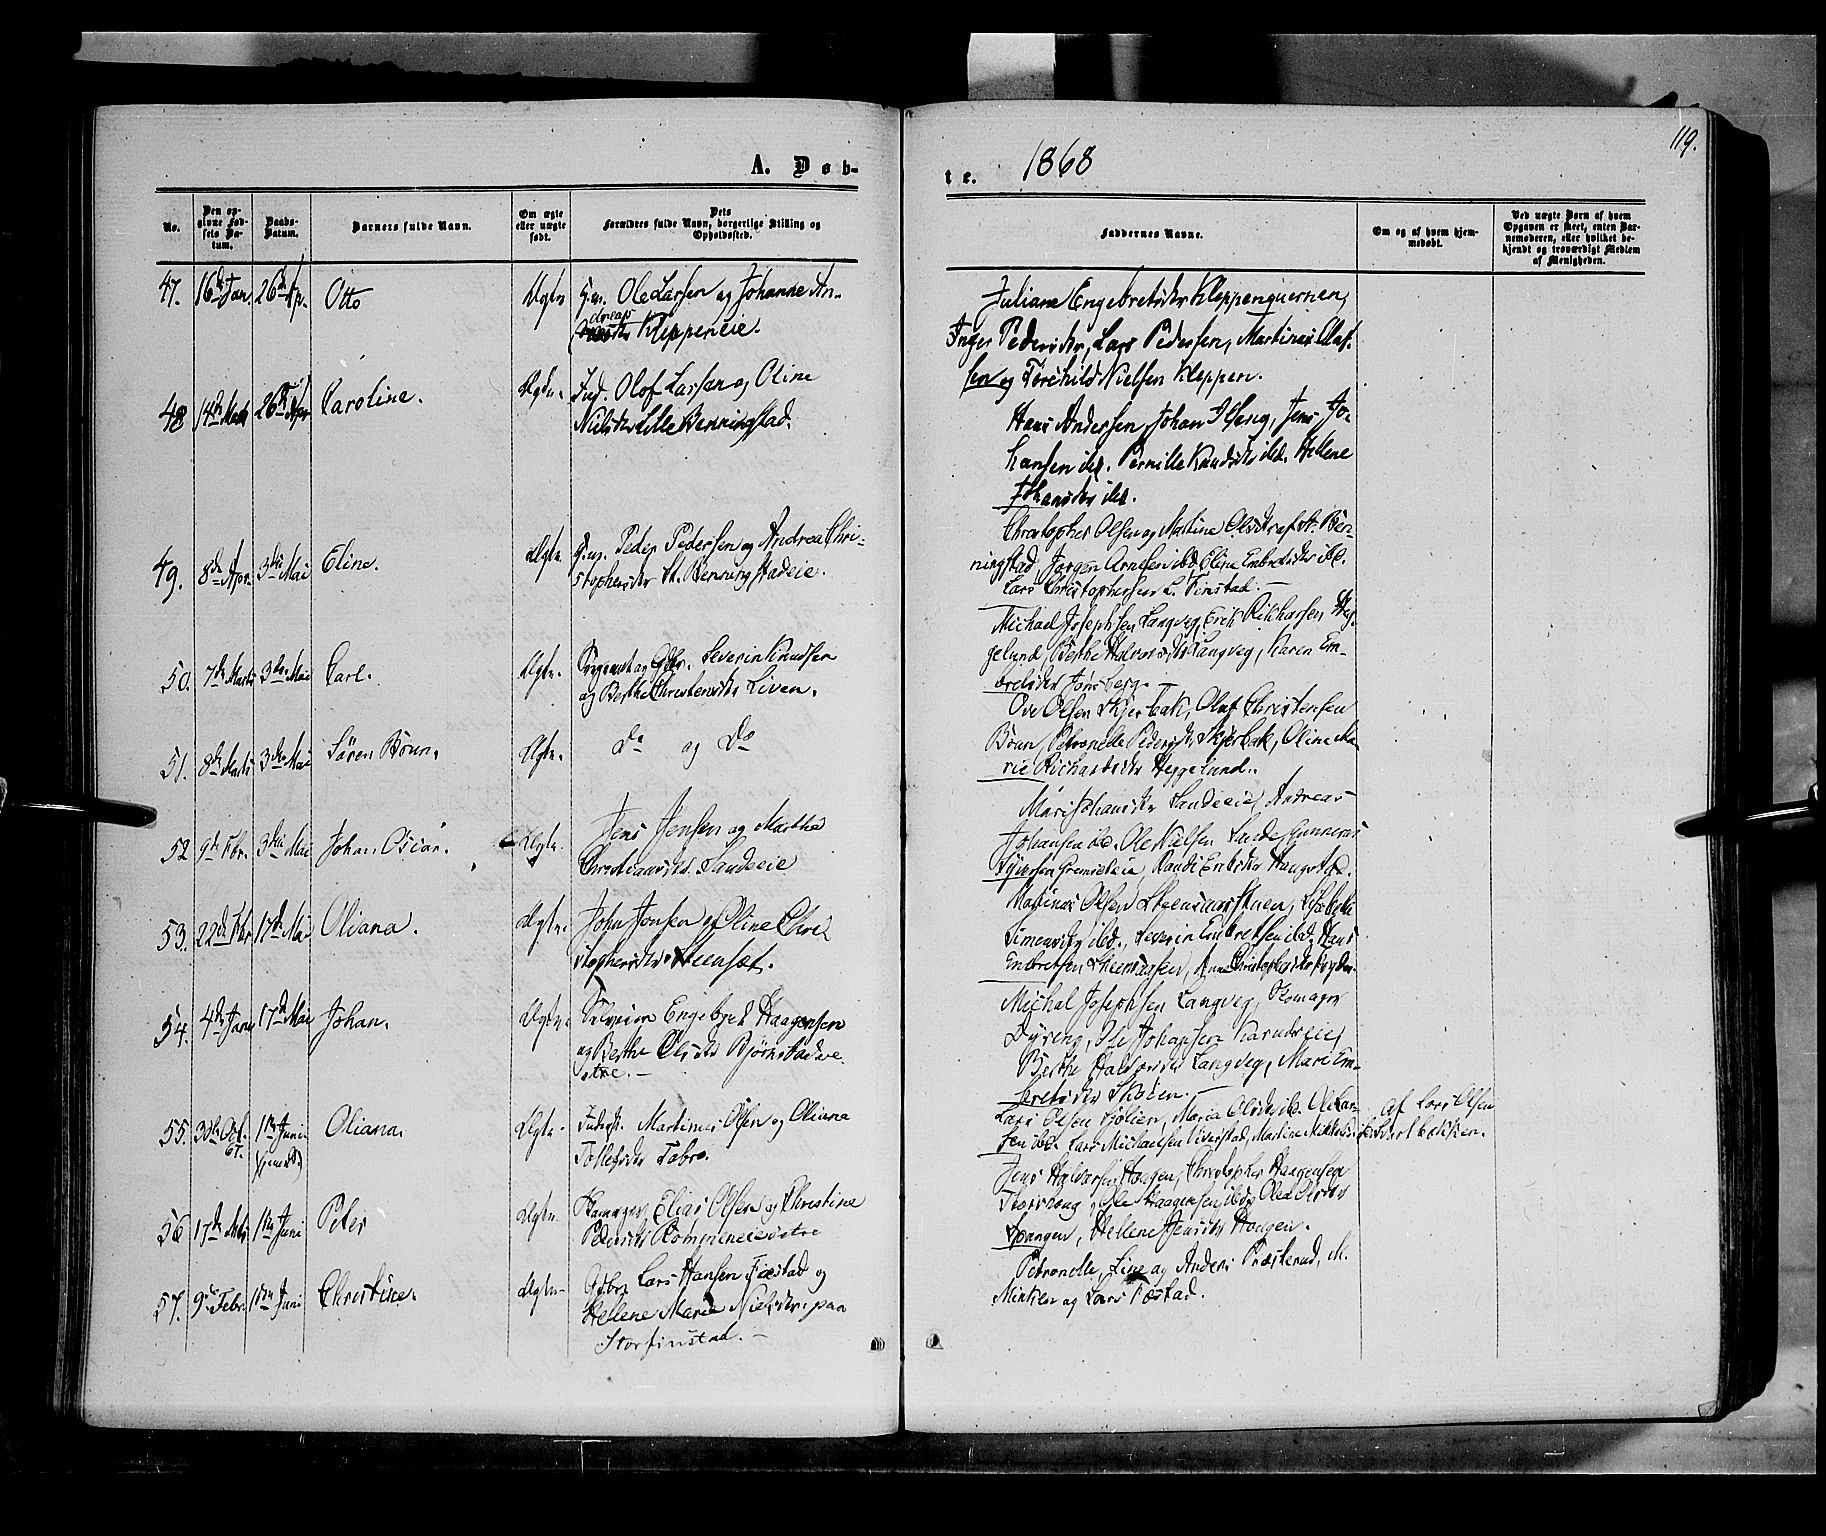 119.
A. Døb-
te. 1868
No.
Den opgivne Fødsels Datum.
Daabs-Datum.
Barnets fulde Navn.
Om ægte eller uægte født.
Dets Forældres fulde Navn, borgerlige Stilling og Opholdssted.
Faddernes Navne.
Om og af hvem hjemmedøbt.
Ved uægte Børn af hvem Opgaven er skeet, enten Barnemoderen, eller hvilket bekjendt og troværdigt Medlem af Menigheden.
47. 16de Jan. 26de Ap. Otto Ægte Gm. Ole Larsen og Johanne An-
dreas Kleppeneie.
Juliane Engebretsdtr Kleppenquernen,
Inger Pedersdtr, Lars Pedersen, Martinus Olaf-
sen og Torchild Nielsen Kleppen.
48 14de Marts 26de Apr Caroline. Ægte. Ind. Olof Larsen og Oline
Nilsdtr Lille Benningstad.
Hans Andersen, Johan Iherig, Jens Jo-
hansen ibd. Pernille Knudsdtr ibd. Hellene
Johansdtr ibd.
49. 8de Apr. 3die Mai Eline. Ægte Gm. Peder Pedersen og Andrea Chri-
stophersdtr St. Benningstadeie.
Christopher Olsen og Martine Olsdtr af St. Ben-
ningstad, Jørgen Arnesen ibd, Eline Embretsdtr ibd.
Lars Christophersen L. Finstad.
50. 7de Marts 3die Mai Carl. Ægte. Sergeant og Gbr. Severin Knudsen
og Berthe Christensdtr Liven.
Michael Josephsen Langveg, Erik Rikharsen Heg-
gelund, Berthe Halvorsdtr Langveg, Karen Em-
bretsdtr Jønsberg.
51. 8de Marts 3die Mai Søren Brun. Ægte. Do og Do
Ove Olsen Skjerbak, Olaf Christensen
Brun, Petronelle Pedersdtr Skjerbak, Oline Ma-
rie Richardsdtr Heggelund.
52 9de Fbr. 3die Mai Johan Oscar. Ægte. Jens Jensen og Marthe
Christiansdtr. Sandeeie
Mari Johansdtr Sandeeie, Andreas
Johansen ibd. Ole Nielsen Sande, Gunnerus
Syversen Grimsetheie, Randi Eriksdtr Haugstad.
53. 22de Fbr 17de Mai Oliana. Ægte. John Jonsen og Oline Chri-
stophersdtr Steenset.
Martinus Olsen, Lisebeth
Simensdtr ibd., Severin Embretsen ibd. Hans
Embretsen
54. 4de Jan 17de Mai Johan. Ægte. Engebret Haagensen
og Berthe Olsdtr Bjørnstadeie
stre.
Michal Josephsen Langveg,
Dyreng, Ole Johansen
Berthe Halvorsdtr Langveg, Mari Em-
bretsdtr Skolen.
55. 30de Oct. 67. 1ste Juni (hjemdt) Oliana. Ægte. Inderst. Martinus Olsen og Oliana
Tollefsdtr Tabro.
Lars Olsen Sjølien, Maria Olsdtr ibd. Ole Lar-
sen ibd. Lars Michaelsen
Af Lars Olsen
56. 17de Mts. 1ste Juni Peter Ægte. Elias Olsen og Christine
Pedersdtr Rommeneievstre
Jens Halvorsen Haugen, Christopher Haagensen
Ole Haagensen ibd, Olea Olsdtr
Spangen, Hellene Jensdtr Haugen.
57. 9de Febr. 1ste Juni Christine. Ægte. Gbr Lars Hansen Fæstad og
Hellene Marie Nielsdtr paa
Storfinstad.
Petronelle, Line og Anders Præsterud, M.
og Lars Fæstad.